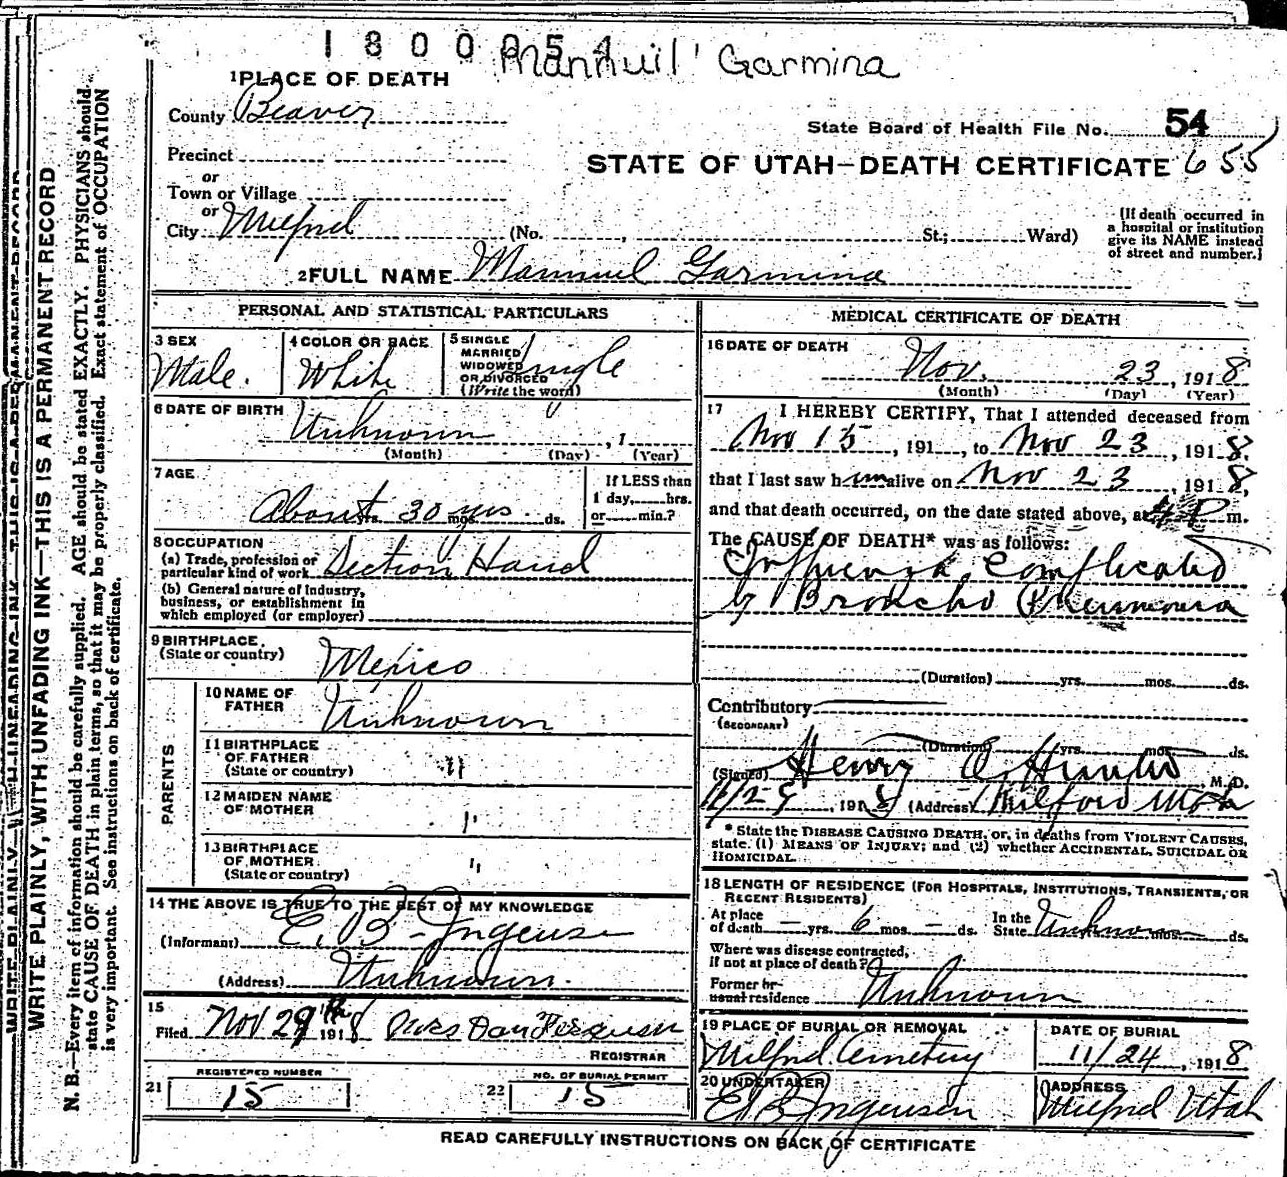 1800054
Mannuil Garmina
1 PLACE OF DEATH
County Beaver
State Board of Health File No. 54
Precinct
STATE OF UTAH—DEATH CERTIFICATE 655
or
Town or Village
or
City Milford (No. , St.; Ward)
(If death occurred in
a hospital or institution
give its NAME instead
of street and number.)
2 FULL NAME Mannuel Garmina
PERSONAL AND STATISTICAL PARTICULARS
3 SEX
Male.
4 COLOR OR RACE
White
5 SINGLE
MARRIED
WIDOWED
OR DIVORCED
(Write the word)
Single
6 DATE OF BIRTH
Unknown , 1
(Month) (Day) (Year)
7 AGE
About 30 yrs
yrs. mos. ds.
If LESS than
1 day, hrs.
or min.?
8 OCCUPATION
(a) Trade, profession or
particular kind of work Section Hand
(b) General nature of Industry,
business, or establishment in
which employed (or employer)
9 BIRTHPLACE
(State or country)
Mexico
PARENTS
10 NAME OF
FATHER
Unknown
11 BIRTHPLACE
OF FATHER
(State or country) "
12 MAIDEN NAME
OF MOTHER "
13 BIRTHPLACE
OF MOTHER
(State or country) "
14 THE ABOVE IS TRUE TO THE BEST OF MY KNOWLEDGE
(Informant) E. B. Jngensen
(Address) Unknown.
15
Filed Nov 29th 1918
REGISTRAR
REGISTERED NUMBER
21 15
NO. OF BURIAL PERMIT
22 15
MEDICAL CERTIFICATE OF DEATH
16 DATE OF DEATH
Nov. 23, 1918
(Month) (Day) (Year)
17 I HEREBY CERTIFY, That I attended deceased from
Nov 15, 191 , to Nov 23, 1918.
that I last saw him alive on Nov 23, 1918,
and that death occurred, on the date stated above, at 4 P m.
The CAUSE OF DEATH* was as follows:
Influenza Complicated
by Broncho Pneumonia
(Duration) yrs. mos. ds.
Contributory
(SECONDARY)
(Duration) yrs. mos. ds.
(Signed) Henry M. D.
191 (Address) Milford
* State the DISEASE CAUSING DEATH, or, in deaths from VIOLENT CAUSES,
state (1) MEANS OF INJURY; and (2) whether ACCIDENTAL, SUICIDAL OR
HOMICIDAL.
18 LENGTH OF RESIDENCE (FOR HOSPITALS, INSTITUTIONS, TRANSIENTS, OR
RECENT RESIDENTS)
At place
of death — yrs. 6 mos. — ds.
In the
State Unknown yrs. mos. ds.
Where was disease contracted,
if not at place of death?
Former or
usual residence Unknown
19 PLACE OF BURIAL OR REMOVAL
Milford Cemetery
DATE OF BURIAL
11/24, 1918
20 UNDERTAKER
E. B. Jngensen
ADDRESS
Milford Utah
READ CAREFULLY INSTRUCTIONS ON BACK OF CERTIFICATE
WRITE PLAINLY, WITH UNFADING INK—THIS IS A PERMANENT RECORD
N. B.—Every item of information should be carefully supplied. AGE should be stated EXACTLY. PHYSICIANS should
state CAUSE OF DEATH in plain terms, so that it may be properly classified. Exact statement of OCCUPATION
is very important. See instructions on back of certificate.